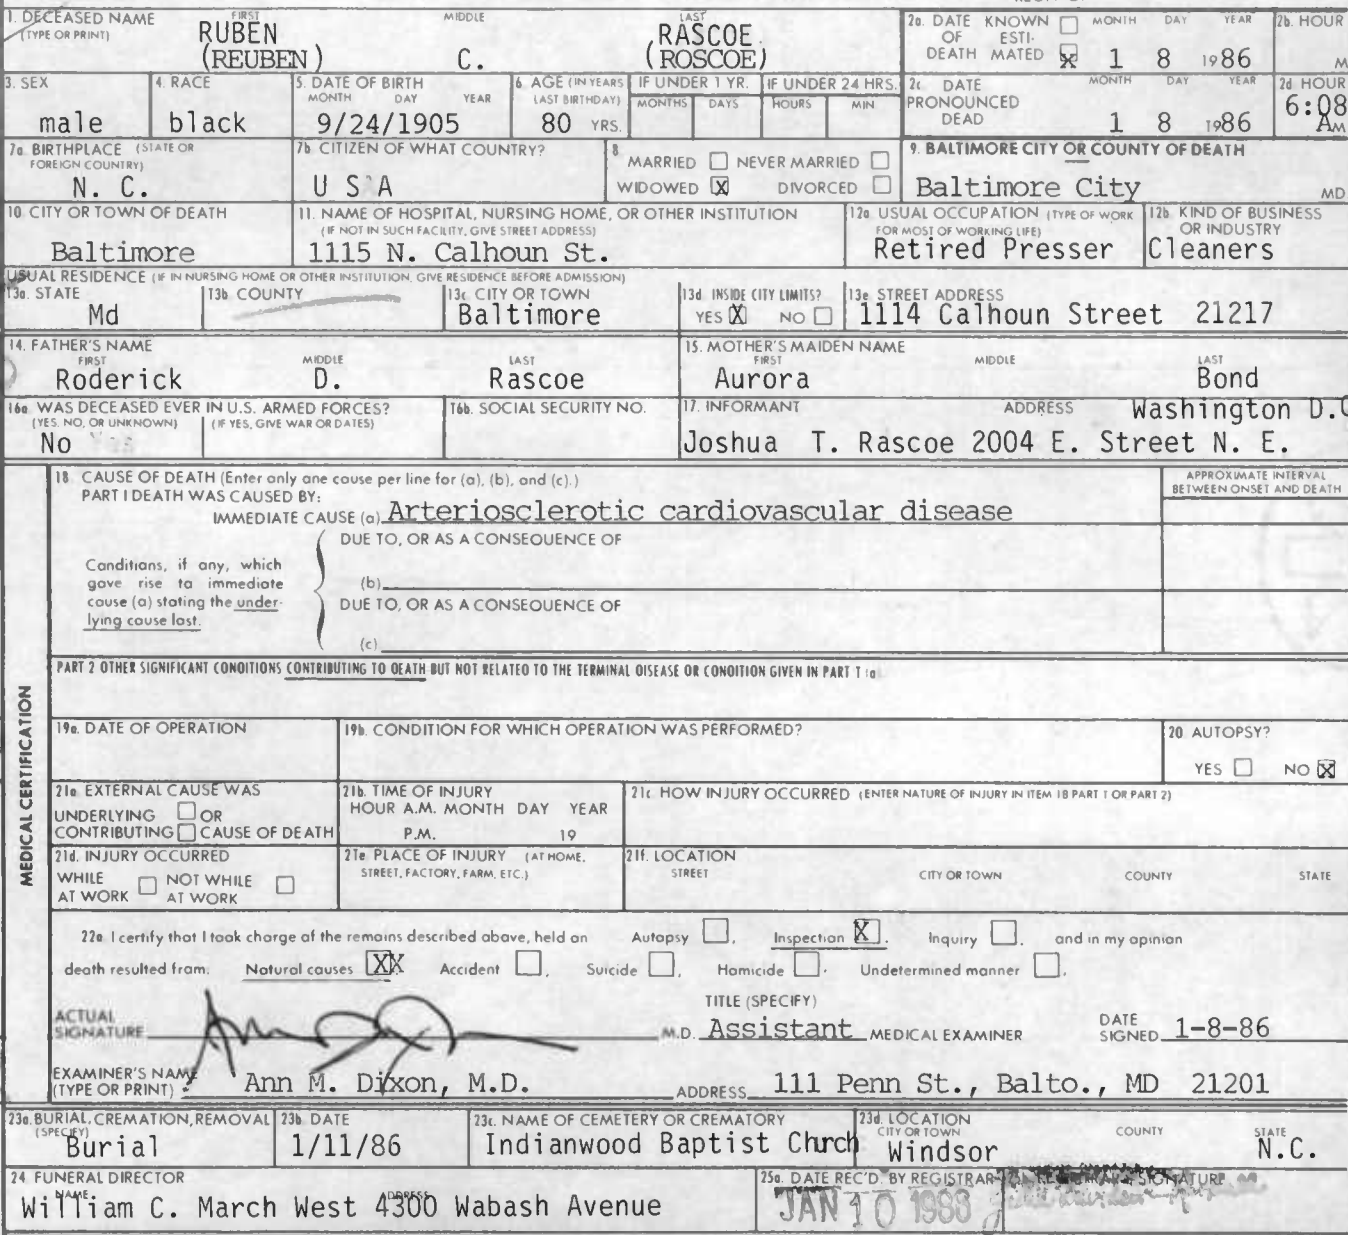 1. DECEASED NAME FIRST MIDDLE LAST
(TYPE OR PRINT) RUBEN RASCOE
(REUBEN) C. (ROSCOE)
2a. DATE KNOWN ☐ MONTH DAY YEAR
OF ESTI-
DEATH MATED ☒ 1 8 1986
2b. HOUR
M
3. SEX
male
4. RACE
black
5. DATE OF BIRTH
MONTH DAY YEAR
9/24/1905
6. AGE (IN YEARS
LAST BIRTHDAY)
80 YRS.
IF UNDER 1 YR.
MONTHS DAYS
IF UNDER 24 HRS.
HOURS MIN
2c. DATE MONTH DAY YEAR
PRONOUNCED
DEAD 1 8 1986
2d HOUR
6:08
AM
7a. BIRTHPLACE (STATE OR
FOREIGN COUNTRY)
N. C.
7b. CITIZEN OF WHAT COUNTRY?
U S A
8
MARRIED ☐ NEVER MARRIED ☐
WIDOWED ☒ DIVORCED ☐
9. BALTIMORE CITY OR COUNTY OF DEATH
Baltimore City MD
10. CITY OR TOWN OF DEATH
Baltimore
11. NAME OF HOSPITAL, NURSING HOME, OR OTHER INSTITUTION
(IF NOT IN SUCH FACILITY, GIVE STREET ADDRESS)
1115 N. Calhoun St.
12a. USUAL OCCUPATION (TYPE OF WORK
FOR MOST OF WORKING LIFE)
Retired Presser
12b. KIND OF BUSINESS
OR INDUSTRY
Cleaners
USUAL RESIDENCE (IF IN NURSING HOME OR OTHER INSTITUTION, GIVE RESIDENCE BEFORE ADMISSION)
13a. STATE
Md
13b. COUNTY
13c. CITY OR TOWN
Baltimore
13d. INSIDE CITY LIMITS?
YES ☒ NO ☐
13e. STREET ADDRESS
1114 Calhoun Street 21217
14. FATHER'S NAME
FIRST MIDDLE LAST
Roderick D. Rascoe
15. MOTHER'S MAIDEN NAME
FIRST MIDDLE LAST
Aurora Bond
16a. WAS DECEASED EVER IN U.S. ARMED FORCES?
(YES, NO, OR UNKNOWN) (IF YES, GIVE WAR OR DATES)
No
16b. SOCIAL SECURITY NO.
17. INFORMANT ADDRESS Washington D.C
Joshua T. Rascoe 2004 E. Street N. E.
MEDICAL CERTIFICATION
18 CAUSE OF DEATH (Enter only one cause per line for (a), (b), and (c).)
PART I DEATH WAS CAUSED BY:
IMMEDIATE CAUSE (a) Arteriosclerotic cardiovascular disease
DUE TO, OR AS A CONSEQUENCE OF
Conditions, if any, which
gave rise to immediate
cause (a) stating the under-
lying cause last.
(b)
DUE TO, OR AS A CONSEQUENCE OF
(c)
APPROXIMATE INTERVAL
BETWEEN ONSET AND DEATH
PART 2 OTHER SIGNIFICANT CONDITIONS CONTRIBUTING TO DEATH BUT NOT RELATED TO THE TERMINAL DISEASE OR CONDITION GIVEN IN PART 1 (a)
19a. DATE OF OPERATION
19b. CONDITION FOR WHICH OPERATION WAS PERFORMED?
20. AUTOPSY?
YES ☐ NO ☒
21a. EXTERNAL CAUSE WAS
UNDERLYING ☐ OR
CONTRIBUTING ☐ CAUSE OF DEATH
21b. TIME OF INJURY
HOUR A.M. MONTH DAY YEAR
P.M. 19
21c. HOW INJURY OCCURRED (ENTER NATURE OF INJURY IN ITEM 18 PART 1 OR PART 2)
21d. INJURY OCCURRED
WHILE ☐ NOT WHILE ☐
AT WORK AT WORK
21e. PLACE OF INJURY (AT HOME,
STREET, FACTORY, FARM, ETC.)
21f. LOCATION
STREET CITY OR TOWN COUNTY STATE
22a. I certify that I took charge of the remains described above, held an Autopsy ☐, Inspection ☒, Inquiry ☐, and in my opinion
death resulted from: Natural causes ☒X Accident ☐, Suicide ☐, Homicide ☐. Undetermined manner ☐.
ACTUAL
SIGNATURE M.D.
TITLE (SPECIFY)
Assistant MEDICAL EXAMINER
DATE
SIGNED 1-8-86
EXAMINER'S NAME
(TYPE OR PRINT) Ann M. Dixon, M.D. ADDRESS 111 Penn St., Balto., MD 21201
23a. BURIAL, CREMATION, REMOVAL
(SPECIFY)
Burial
23b. DATE
1/11/86
23c. NAME OF CEMETERY OR CREMATORY
Indianwood Baptist Church
23d. LOCATION
CITY OR TOWN COUNTY STATE
Windsor N.C.
24. FUNERAL DIRECTOR
NAME ADDRESS
William C. March West 4300 Wabash Avenue
25a. DATE REC'D. BY REGISTRAR
JAN 10 1986
SIGNATURE